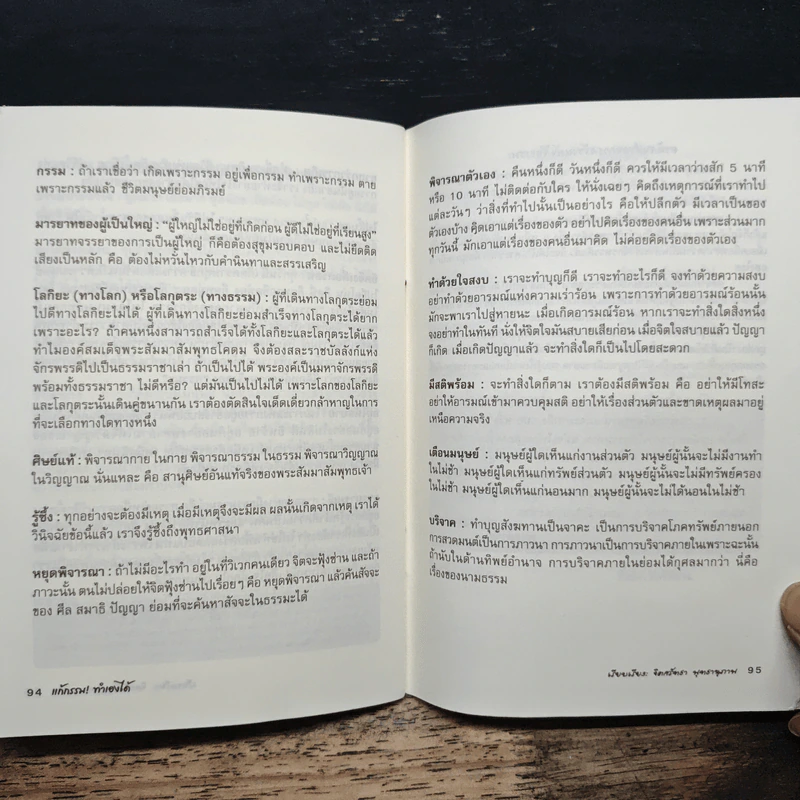 กรรม : ถ้าเราเชื่อว่า เกิดเพราะกรรม อยู่เพื่อกรรม ทำเพราะกรรม ตาย
เพราะกรรมแล้ว ชีวิตมนุษย์ย่อมภิรมย์
มารยาทของผู้เป็นใหญ่ : "ผู้ใหญ่ไม่ใช่อยู่ที่เกิดก่อน ผู้ดีไม่ใช่อยู่ที่เรียนสูง"
มารยาทจรรยาของการเป็นผู้ใหญ่ ก็คือต้องสุขุมรอบคอบ และไม่ยึดติด
เสียงเป็นหลัก คือ ต้องไม่หวั่นไหวกับคำนินทาและสรรเสริญ
โลกิยะ (ทางโลก) หรือโลกุตระ (ทางธรรม) : ผู้ที่เดินทางโลกุตระย่อม
ไปดีทางโลกิยะไม่ได้ ผู้ที่เดินทางโลกิยะย่อมสำเร็จทางโลกุตระได้ยาก
เพราะอะไร? ถ้าคนหนึ่งสามารถสำเร็จได้ทั้งโลกิยะและโลกุตระได้แล้ว
ทำไมองค์สมเด็จพระสัมมาสัมพุทธโคดม จึงต้องสละราชบัลลังก์แห่ง
จักรพรรดิไปเป็นธรรมราชาเล่า ถ้าเป็นไปได้ พระองค์เป็นมหาจักรพรรดิ
พร้อมทั้งธรรมราชา ไม่ดีหรือ? แต่มันเป็นไปไม่ได้ เพราะโลกของโลกิยะ
และโลกุตระนั้นเดินคู่ขนานกัน เราต้องตัดสินใจเด็ดเดี่ยวกล้าหาญในการ
ที่จะเลือกทางใดทางหนึ่ง
ศิษย์แท้ : พิจารณากาย ในกาย พิจารณาธรรม ในธรรม พิจารณาวิญญาณ
ในวิญญาณ นั่นแหละ คือ สานุศิษย์อันแท้จริงของพระสัมมาสัมพุทธเจ้า
รู้ซึ้ง : ทุกอย่างจะต้องมีเหตุ เมื่อมีเหตุจึงจะมีผล ผลนั้นเกิดจากเหตุ เราได้
วินิจฉัยข้อนี้แล้ว เราจึงรู้ซึ้งถึงพุทธศาสนา
หยุดพิจารณา : ถ้าไม่มีอะไรทำ อยู่ในที่วิเวกคนเดียว จิตจะฟุ้งซ่าน และถ้า
ภาวะนั้น ตนไม่ปล่อยให้จิตฟุ้งซ่านไปเรื่อยๆ คือ หยุดพิจารณา แล้วค้นสัจจะ
ของ ศีล สมาธิ ปัญญา ย่อมที่จะค้นหาสัจจะในธรรมะได้
94 แก้กรรม! ทำเองได้
พิจารณาตัวเอง : คืนหนึ่งก็ดี วันหนึ่งก็ดี ควรให้มีเวลาว่างสัก 5 นาที
หรือ 10 นาที ไม่ติดต่อกับใคร ให้นั่งเฉยๆ คิดถึงเหตุการณ์ที่เราทำไป
แต่ละวันๆ ว่าสิ่งที่ทำไปนั้นเป็นอย่างไร คือให้ปลีกตัว มีเวลาเป็นของ
ตัวเองบ้าง คิดเอาแต่เรื่องของตัว อย่าไปคิดเรื่องของคนอื่น เพราะส่วนมาก
ทุกวันนี้ มักเอาแต่เรื่องของคนอื่นมาคิด ไม่ค่อยคิดเรื่องของตัวเอง
ทำด้วยใจสงบ : เราจะทำบุญก็ดี เราจะทำอะไรก็ดี จงทำด้วยความสงบ
อย่าทำด้วยอารมณ์แห่งความเร่าร้อน เพราะการทำด้วยอารมณ์ร้อนนั้น
มักจะพาเราไปสู่หายนะ เมื่อเกิดอารมณ์ร้อน หากเราจะทำสิ่งใดสิ่งหนึ่ง
จงอย่าทำในทันที นั่งให้จิตใจมันสบายเสียก่อน เมื่อจิตใจสบายแล้ว ปัญญา
ก็เกิด เมื่อเกิดปัญญาแล้ว จะทำสิ่งใดก็เป็นไปโดยสะดวก
มีสติพร้อม : จะทำสิ่งใดก็ตาม เราต้องมีสติพร้อม คือ อย่าให้มีโทสะ
อย่าให้อารมณ์เข้ามาควบคุมสติ อย่าให้เรื่องส่วนตัวและขาดเหตุผลมาอยู่
เหนือความจริง
เตือนมนุษย์ : มนุษย์ผู้ใดเห็นแก่งานส่วนตัว มนุษย์ผู้นั้นจะไม่มีงานทำ
ในไม่ช้า มนุษย์ผู้ใดเห็นแก่ทรัพย์ส่วนตัว มนุษย์ผู้นั้นจะไม่มีทรัพย์ครอง
ในไม่ช้า มนุษย์ผู้ใดเห็นแก่นอนมาก มนุษย์ผู้นั้นจะไม่ได้นอนในไม่ช้า
บริจาค : ทำบุญสังฆทานเป็นจาคะ เป็นการบริจาคโภคทรัพย์ภายนอก
การสวดมนต์เป็นการภาวนา การภาวนาเป็นการบริจาคภายในเพราะฉะนั้น
ถ้านับในด้านทิพย์อำนาจ การบริจาคภายในย่อมได้กุศลมากว่า นี่คือ
เรื่องของนามธรรม
เรียบเรียง จิตตวัชรา พุทธานุภาพ 95